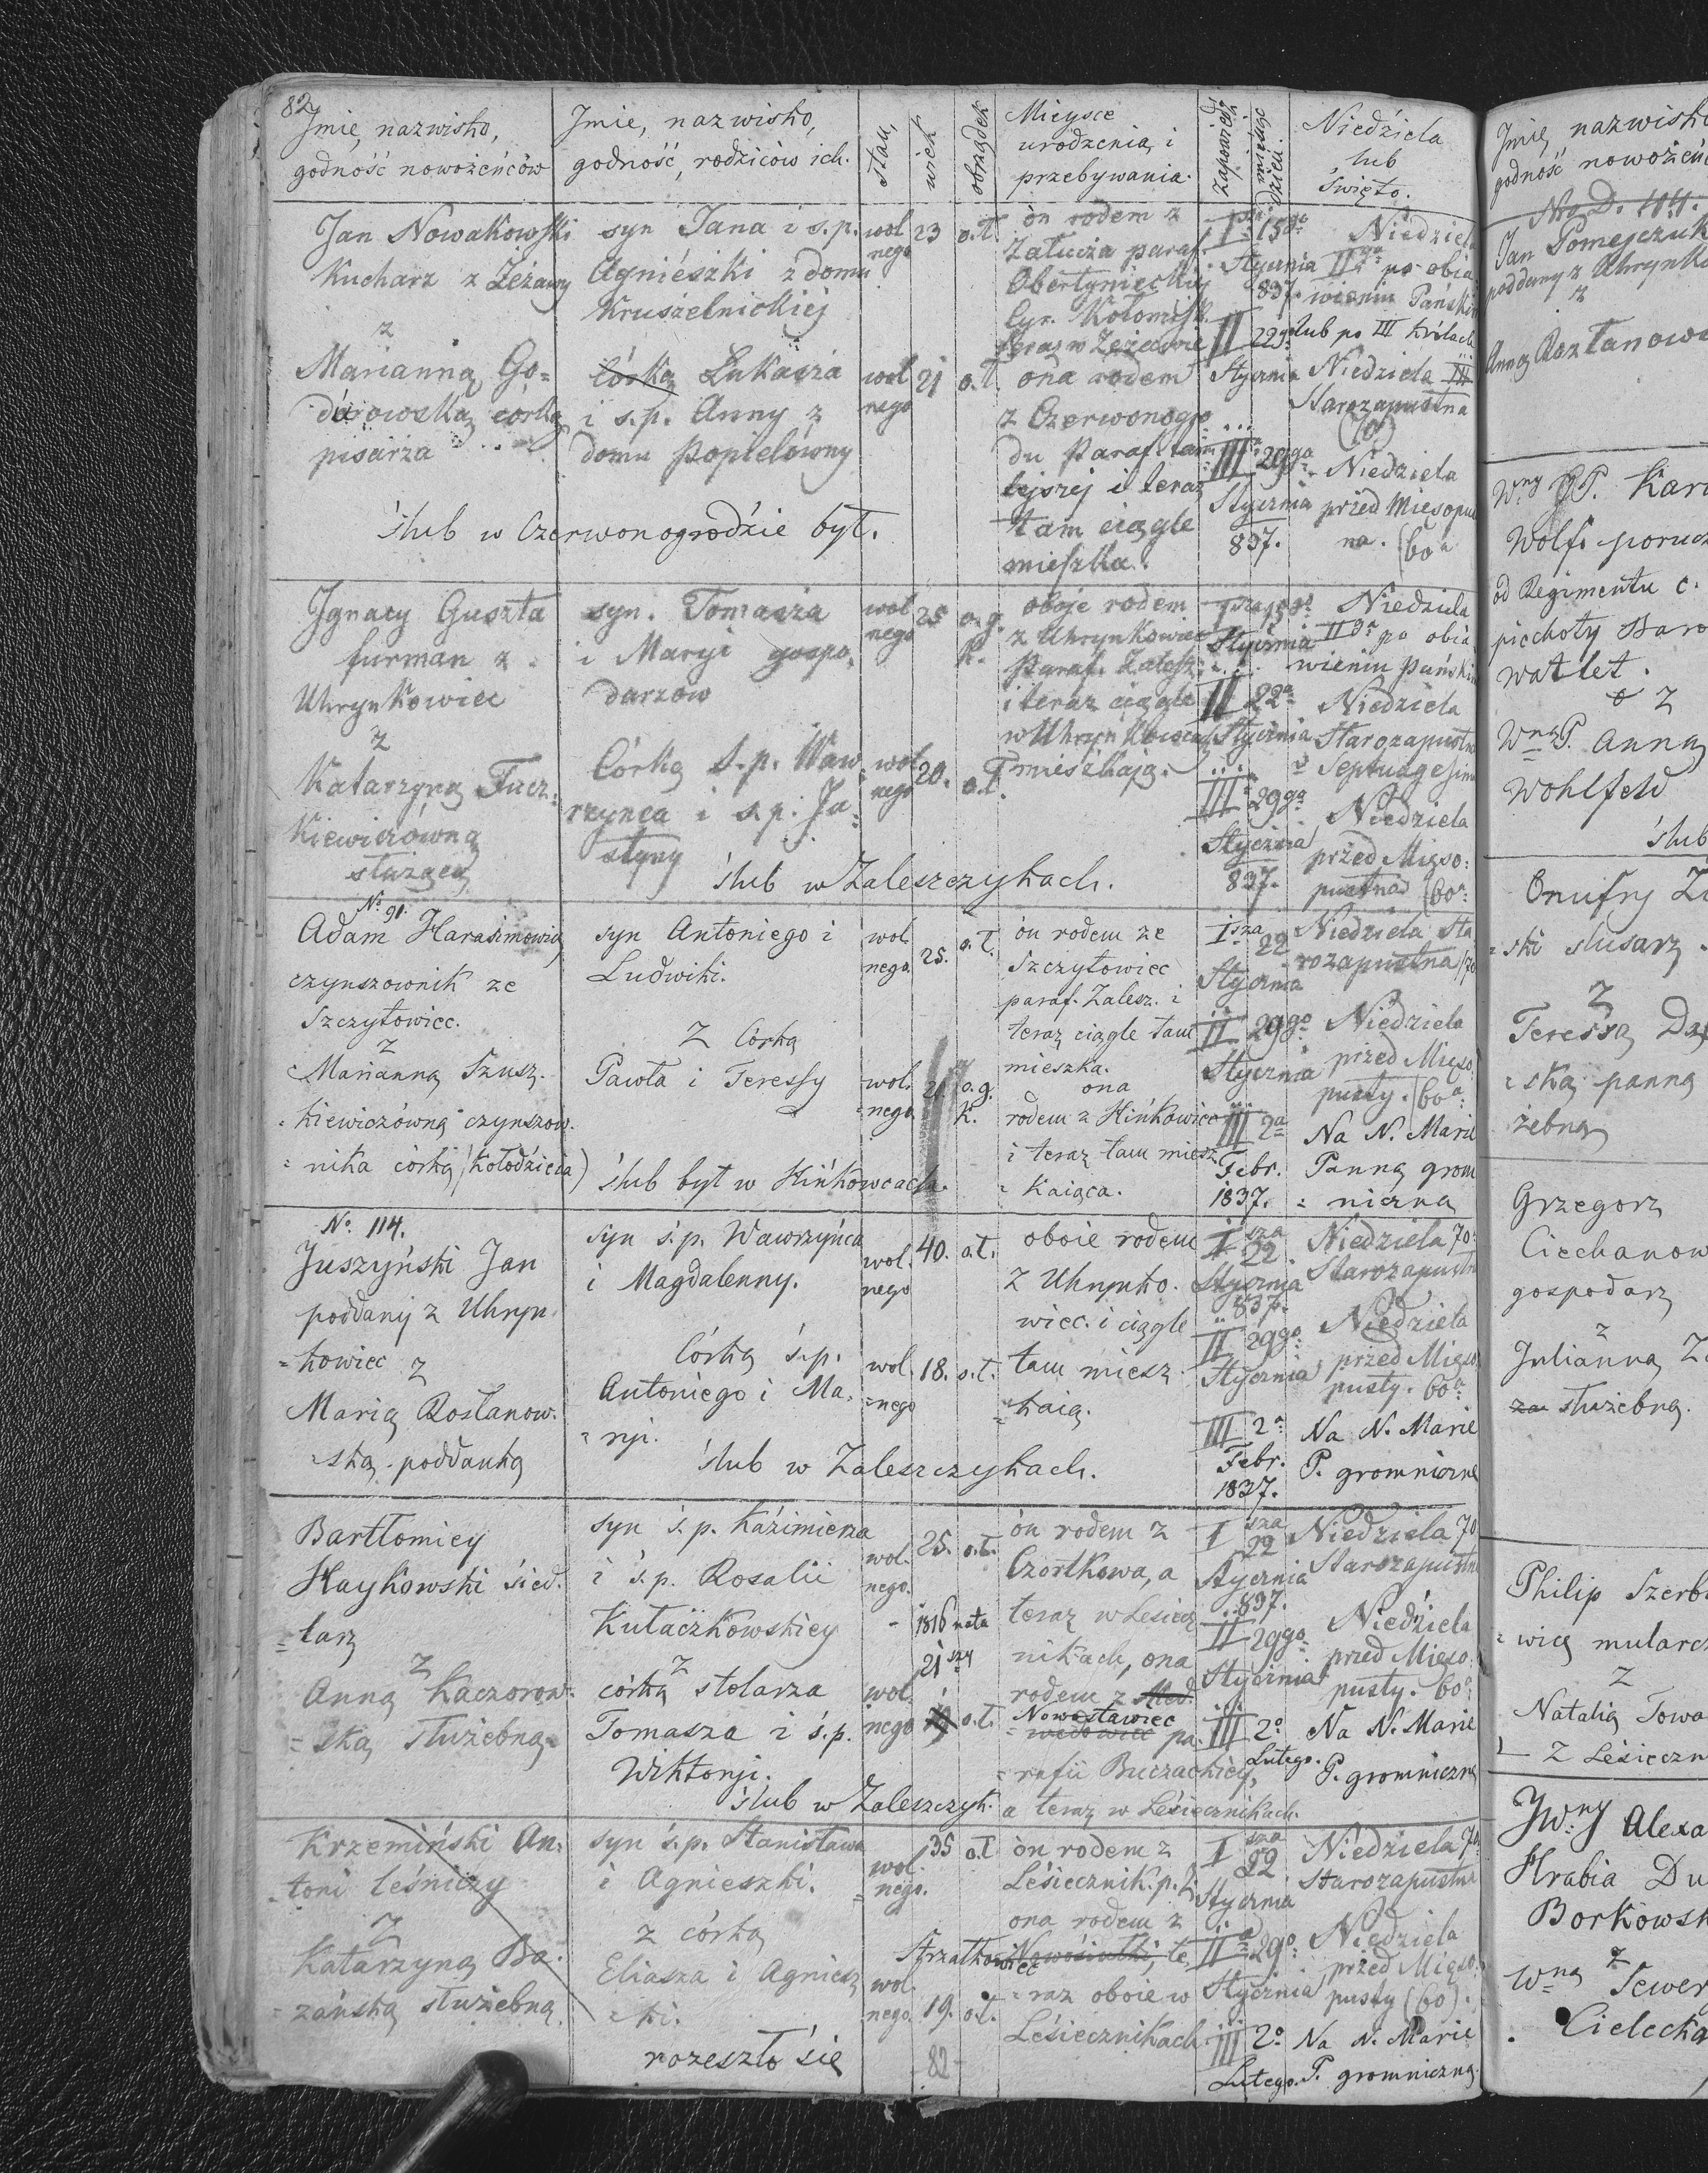 82
Jmie, nazwisko,
godność nowożeńców
Jmie, nazwisko,
godność, rodziców ich.
stan,
wiek
obrządek
Mieysce
urodzenia, i
przebywania.
zapowiedź
miesiąc
dzień.
Niedziela
lub
święto.
Jan Nowakowski
Kucharz z Zeżawy
z
Marianną Go=
durowską córką
pisarza
syn Jana i s.p.
Agniészki z domu
Kruszelnickiéj
Córką Łukasza
i s.p. Anny z
domu Popielówny
Ślub w Czerwonogrodzie był.
wol
nego
23
o.ł.
wol
nego
21
o.ł.
ón rodem z
Załucza paraf.
Obertynieckiéj
Cyr. Kołomyjsk.
teraz w Zeżawie
ona rodem
z Czerwonogro
du Paraf. tam
tejszej i teraz
tam ciągle
mieszka.
Isza 15go
Stycznia
837.
II 22go
Stycznia
III 29go
Stycznia
837.
Niedziela
IIga po obia
wieniu Pańskim
lub po III Królach
Niedziela III
Starozapustna
(70)
Niedziela
przed Mięsopu
na. (60a
Jgnacy Guszta
furman z
Uhrynkowiec
z
Katarzyną Tucz=
Kiewiczówną
służącą
syn. Tomasza
i Maryi gospo=
darzów
Córką ś.p. Waw
rzynca i s.p. Ju=
styny
Ślub w Zaleszczykach.
wol
nego
25
o.g.
k.
wol
nego
20.
o.ł.
oboje rodem
z Uhrynkowiec
Paraf. Zalesz.
i teraz ciągle
w Uhrynkowcach
mieszkają.
Isza 15go
Stycznia
II 22a
Stycznia
III 29ga
Stycznia
837.
Niedziela
IIga po obia
wieniu Pańskim
Niedziela
Starozapustna
Septuagesima
Niedziela
przed Mięso=
pustna (60a:
No 91.
Adam Harasimowicz
czynszownik ze
Szczytowiec.
z
Marianną Szusz=
=kiewiczówną czynszow=
=nika córką (Kołodzieja)
syn Antoniego i
Ludwiki.
Z Córką
Pawła i Teressy
Ślub był w Hińkowcach.
wol
nego.
25.
o.ł.
wol.
=nego
o.g.
k.
ón rodem ze
Szczytowiec
paraf. Zalesz. i
teraz ciągle tam
mieszka.
ona
rodem z Hińkowiec
i teraz tam miesz
=kaiąca.
Isza 22
Stycznia
II 29go
Stycznia
III 2a
Febr.
1837.
Niedziela Sta
rozapustna (70
Niedziela
przed Mięso
pusty. (60a:
Na N. Marie
Panną grom
=niczną
No. 114.
Juszyński Jan
poddany z Uhryn
=kowiec z
Marią Rosłanow=
=ską poddanką
syn ś.p. Wawrzyńca
i Magdalenny.
Córką ś.p.
Antoniego i Ma=
=ryi.
Ślub w Zaleszczykach.
wol.
nego
40.
o.ł.
wol
=nego
18.
o.ł.
oboie rodem
z Uhrynko=
wiec. i ciągle
tam miesz
=kaią.
Isza 22
Stycznia
837.
II 29go:
Stycznia
III 2a:
Febr.
1837.
Niedziela 70:
Starozapustna
Niedziela
przed Mięso
pusty. 60a:
Na N. Marie
P. gromniczne
Bartłomiey
Haykowski sied=
=larz
z
Anną Kaczorow=
=ską służebną
syn ś.p. Kazimierza
i ś.p. Rosalii
Kułaczkowskiey
z
córką stolarza
Tomasza i ś.p.
Wiktoryi.
Ślub w Zaleszczyk.
wol.
nego.
25.
o.ł.
1816 nata
21
wol.
nego
o.ł.
ón rodem z
Czortkowa, a
teraz w Lesiecz
nikach, ona
rodem z
Nowostawiec
pa=
=rafii Buczackiey,
a teraz w Leśiecznikach.
Isza 22
Stycznia
837.
II 29go:
Stycznia
III 2o
Lutego.
Niedziela 70
Starozapustna
Niedziela
przed Mięso
pusty. 60a:
Na N. Marie
P. gromniczną
Krzemiński An=
=toni leśniczy
Z
Katarzyną Ba=
=zańską służebną
syn ś.p. Stanisława
i Agnieszki.
z córką
Eliasza i Agniesz
=ki.
rozeszło się
wol.
=nego.
35
o.ł
wol.
nego.
19.
o.ł.
ón rodem z
Leśiecznik. p. Z.
ona rodem z
Strzałkowiec
Nowosiołki, te=
=raz oboie w
Leśiecznikach
Isza 22
Stycznia
IIa 29o:
Stycznia
III 2o
Lutego.
Niedziela 70
Starozapustna
Niedziela
przed Mięso
pusty (60).
Na N. Marie
P. gromniczną.
82
Jmię, nazwisko
godność nowożeń
Nro D. 104.
Jan Pomejczuk
poddany z Uhrynko
z
Anną Rozłanows
Wny JP. Karo
Wolf. porucz
od Regimentu c.
piechoty Baro
Watlet.
z
Wną P. Anną
Wohlfeld
Ślub
Onufry
=ski slusarz
z
Teressą
=ską panną
żebną
Grzegorz
Ciechanow
gospodarz
z
Julianną
służebną.
Philip Szerb
=wicz mularz
z
Natalią Towa
z Leśieczn
JWny Alexa
Hrabia Du
Borkowsk
z
Wną Sewer
Cielecką